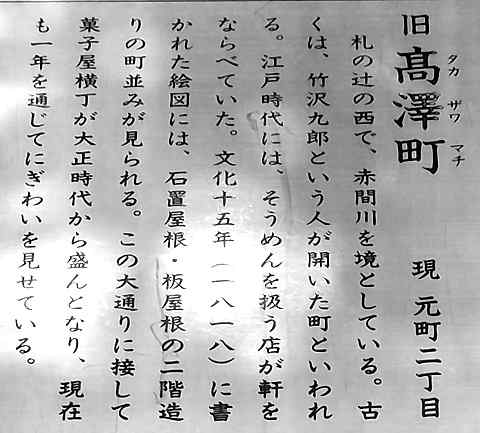 旧 髙澤町 現 元町二丁目
タカ ザワ マチ
札の辻の西で、赤間川を境としている。古
くは、竹沢九郎という人が開いた町といわれ
る。江戸時代には、そうめんを扱う店が軒を
ならべていた。文化十五年(一八一八)に書
かれた絵図には、石置屋根・板屋根の二階造
りの町並みが見られる。この大通りに接して
菓子屋横丁が大正時代から盛んとなり、現在
も一年を通じてにぎわいを見せている。